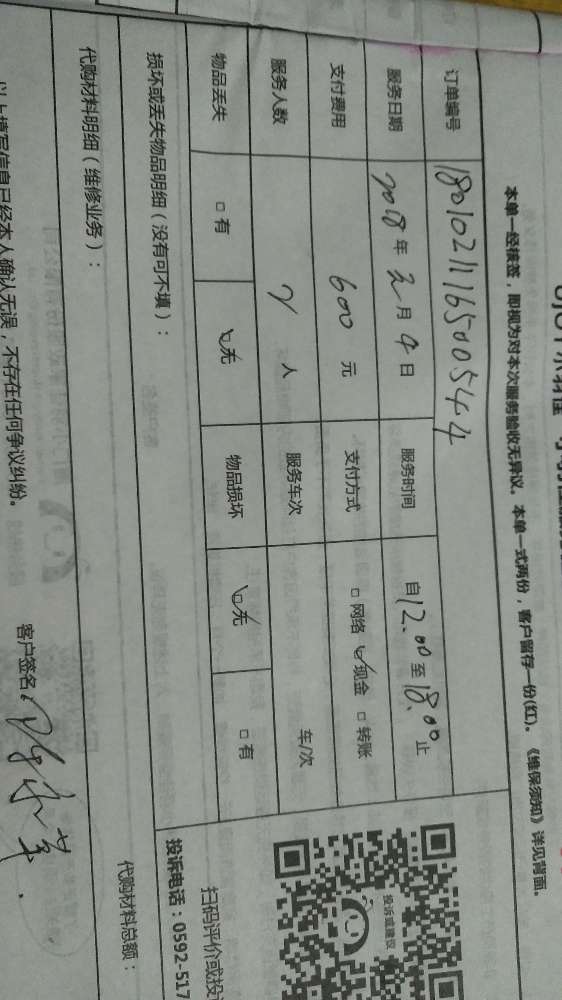 本单一经核签，即视为对本次服务验收无异议。本单一式两份，客户留存一份(红)。《维保须知》详见背面。
订单编号 180102111650054 44
服务日期 2018年2月4日 服务时间 自12:00至18:00止
支付费用 600元 支付方式 □网络 ☑现金 □转账
服务人数 2人 服务车次 车/次
物品丢失 □有 ☑无 物品损坏 ☑无 □有
损坏或丢失物品明细（没有可不填）：
投诉建议
扫码评价或投
投诉电话：0592-517
代购材料明细（维修业务）：
代购材料总额：
以上填写信息已经本人确认无误，不存在任何争议纠纷。
客户签名：